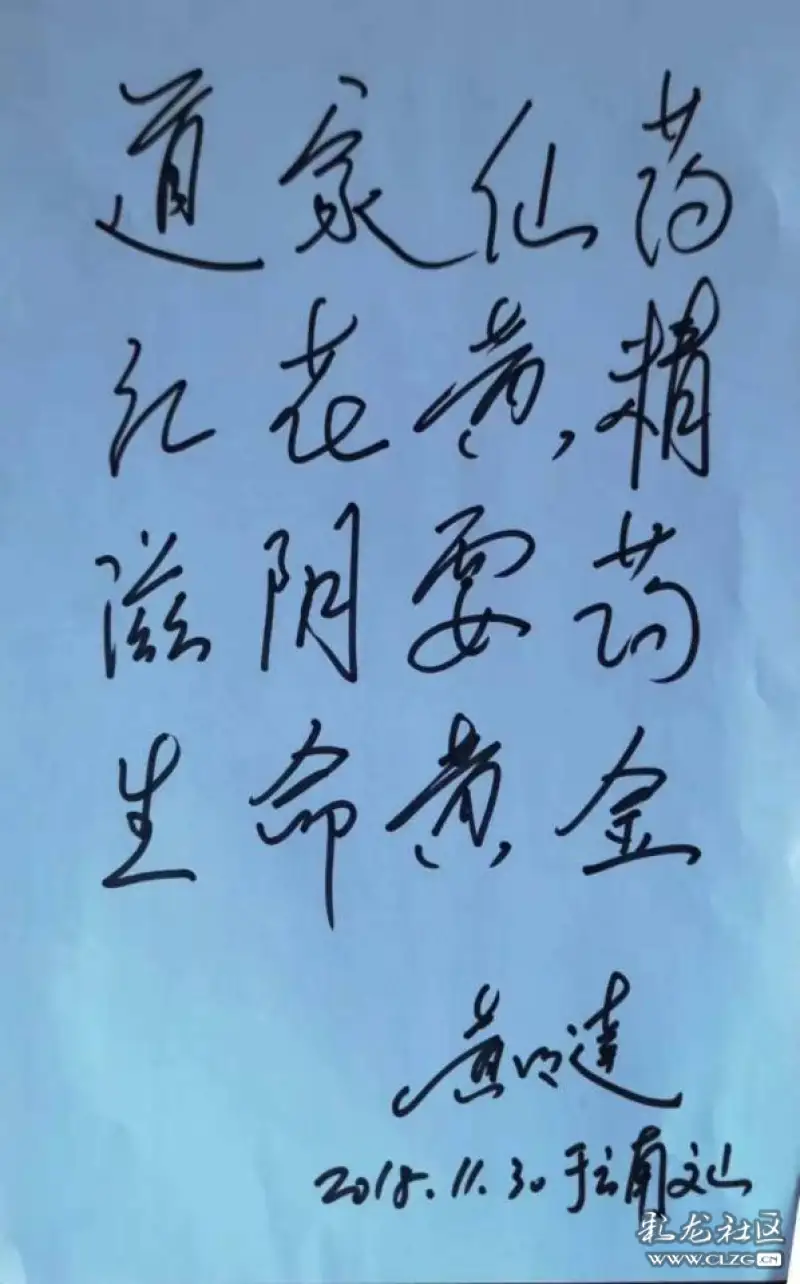 道家仙药
红花黄精
滋阴要药
生命黄金
黄明達
2018.11.30于云南文山
彩龙社区
WWW.CLZG.CN